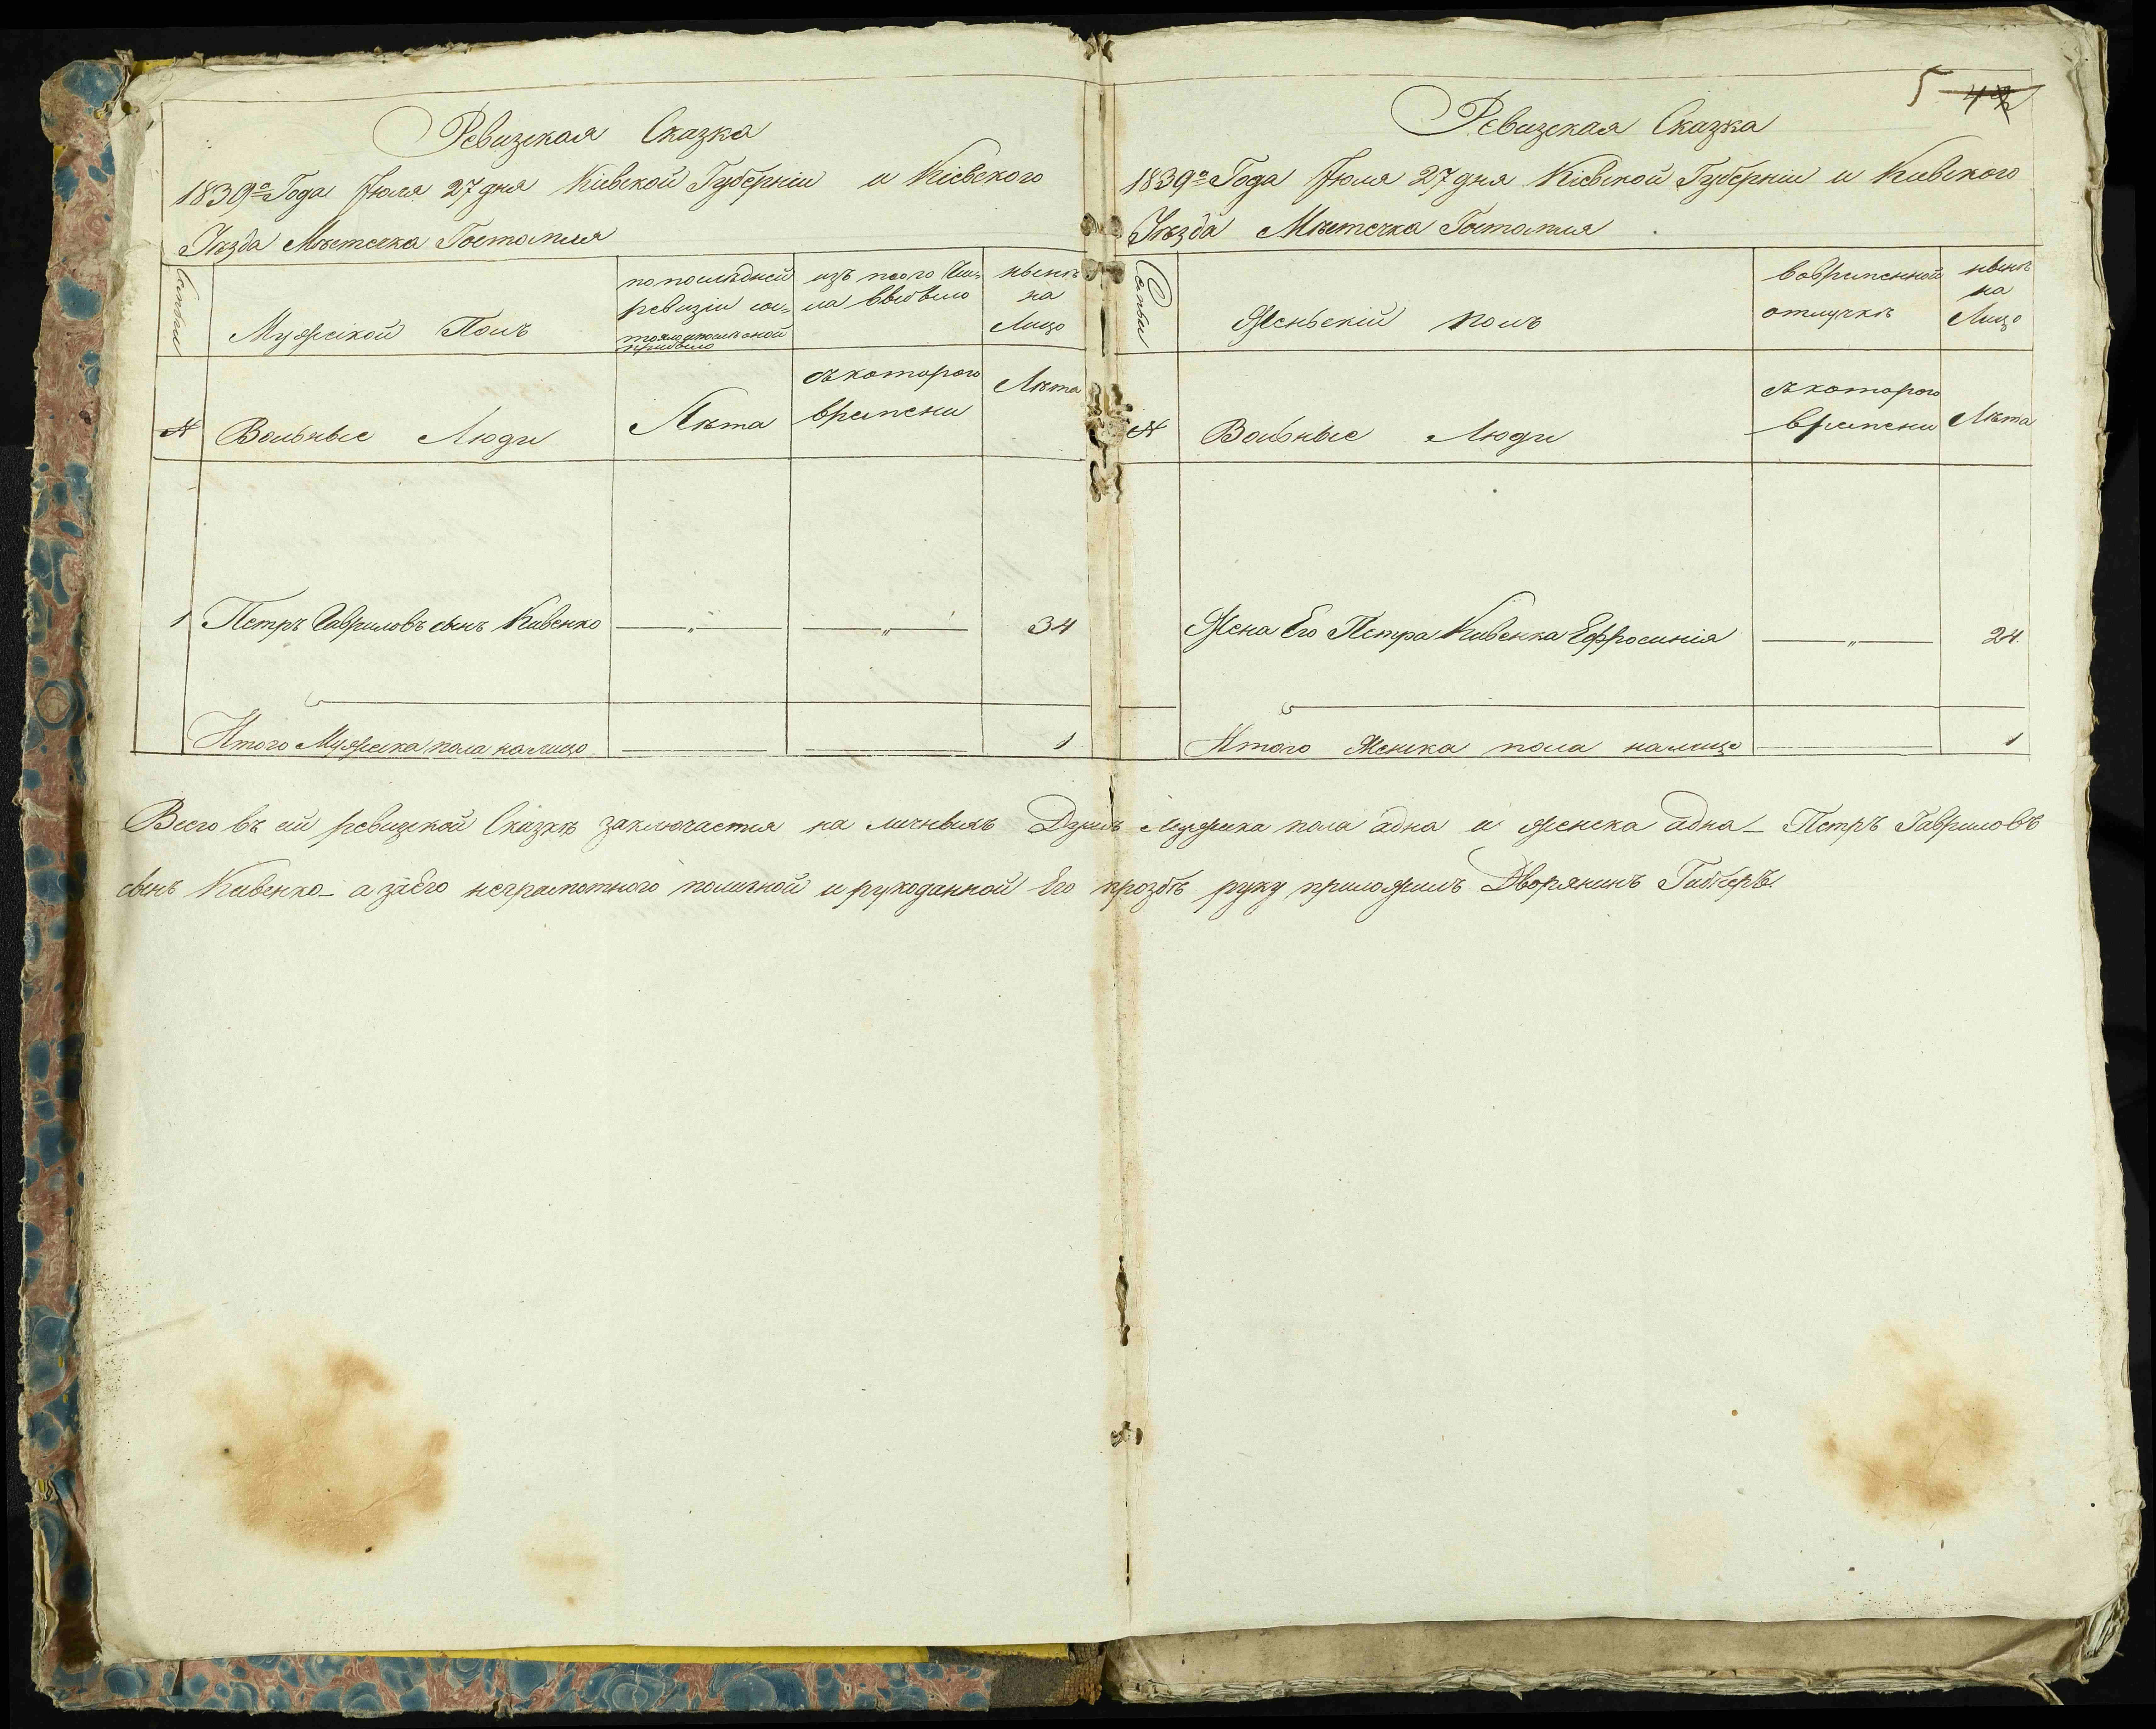 Ревизская Сказка
1839го Года Іюля 27 дня Кіевской Губерніи и Кіевского
Уезда Местечка Гостомля
Семьи
Мужеской Полъ
по последней
ревизіи сос=
тояло и после оной
прибыло
изъ того Чис=
ла выбыло
ныне
на
Лицо
№
Вольные Люди
Лѣта
съ которого
времени
Лѣта
1 Петръ Гавриловъ сынъ Кивенко — „ — — „ — 34
Итого Мужеска пола на лицо 1
5 42
Ревизская Сказка
1839го Года Іюля 27 дня Кіевской Губерніи и Киевского
Уѣзда Мѣстечка Гостомля
Семьи
Женьскій полъ
во временной
отлучкѣ
нынѣ
на
Лицо
№
Вольные Люди
съ которого
времени
Лѣта
Жена Его Петра Кивенка Ефросинія — „ — 24.
Итого Женска пола на лицо 1
Всего въ сей ревизской Сказкѣ заключается на личныхъ Душъ Мужеска пола адна и женска адна – Петръ Гавриловъ
сынъ Кивенко – а за Его неграмотного личной и рукоданной Его прозбѣ руку приложилъ Дворянинъ